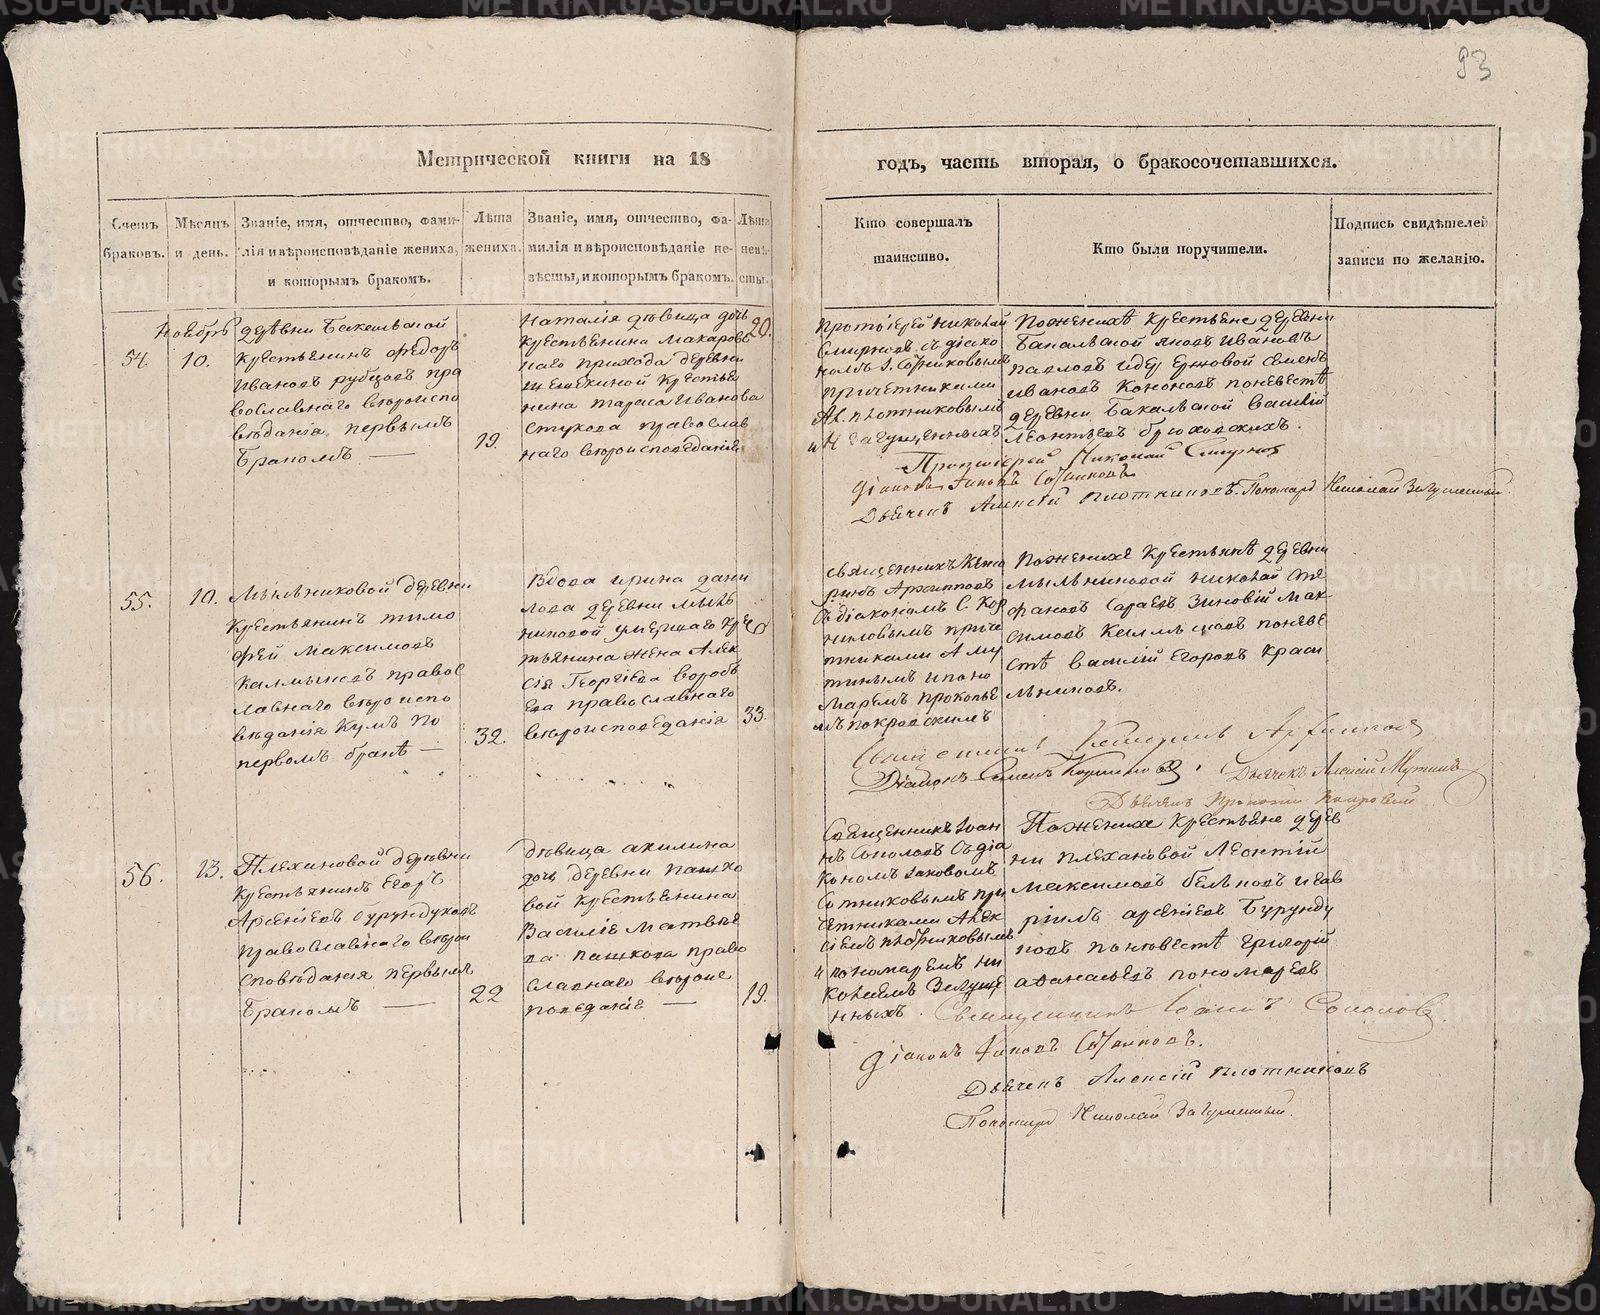 93
Метрической книги на 18
годъ, часть вторая, о бракосочетавшихся.
Счетъ браковъ.
Мѣсяцъ и день.
Званіе, имя, отчество, фами-
лія и вѣроисповѣданіе жениха,
и которымъ бракомъ.
Лѣта
жениха.
Званіе, имя, отчество, фа-
милія и вѣроисповѣданіе не-
вѣсты, и которымъ бракомъ.
Лѣта
невѣ-
сты.
Кто совершалъ
таинство.
Кто были поручители.
Подпись свидѣтелей
записи по желанію.
54.
Ноябрь
10.
Крестьянинъ Федоръ
Ивановъ Рубцовъ пра
вославнаго вѣроиспо
вѣданія, первымъ
Бракомъ
19.
Наталія дѣвица дочь
крестьянина Макаровс
наго прихода деревни
нина Тараса Иванова
Стукова православ
наго вѣроисповѣданія
20.
Протоіерей Николай
Смирновъ съ діако
номъ І. Сотниковымъ
причетниками
Ал. Плотниковымъ
и Н Загуменныхъ
По женихѣ крестьяне деревни
Бакальской Яковъ Ивановъ
Павловъ и дер Ершовой Семенъ
Ивановъ Кононовъ по невѣстѣ
деревни Бакальской Василій
Леонтьевъ Брюховскихъ.
Протоіерей Николай Смирновъ
Діаконъ Іаковъ Сотниковъ
Дьячекъ Алексій Плотниковъ. Пономарь Николай Загуменный.
55.
10.
Мыльниковой деревни
Крестьянинъ Тимо
фей Максимовъ
Калмыковъ правос
лавнаго вѣроиспо
вѣданія
первомъ бракѣ
32.
Вдова Ирина Дани
лова деревни Мыль
никовой умершаго кре
стьянина жена Алек
сія Георгіева Вороб
ева православнаго
вѣроисповѣданія
33.
Архиповъ
съ діакономъ С. Кор
ниловымъ приче
тниками А Му
тинымъ и поно
маремъ Прокопье
мъ Покровскимъ
По женихѣ крестьянѣ деревни
Мыльниковой Николай Сте
фановъ Сараевъ Зиновій Мак
симовъ Калмыковъ по невѣ
стѣ Василій Егоровъ Краси
льниковъ.
Священникъ Архиповъ
Діаконъ Семенъ Корниловъ. Дьячекъ Алексій Мутинъ
Дьячекъ Прокопій Покровскій
56.
13.
Плехановой деревни
Крестьянинъ Егоръ
Арсеніевъ Бурундуковъ
православнаго вѣрои
сповѣданія первымъ
Бракомъ
22
Дѣвица Акилина
дочь деревни Пашко
вой крестьянина
Василіе Матвѣе
ва Пашкова право
славнаго вѣроис
повѣданіе
19.
Священникъ Іоан
нъ Соколовъ съ діа
кономъ Іаковомъ
Сотниковымъ при
четниками Алек
сіемъ Плотниковымъ
и пономаремъ Ни
колаемъ Загуме
нныхъ.
По женихе крестьяне дерев
ни Плехановой Леонтій
Максимовъ Бельковъ и Гав
ріилъ Арсеніевъ Бурунду
ковъ по невестѣ Григорій
Афанасьевъ Пономаревъ
Священникъ Іоаннъ Соколовъ.
Діаконъ Іаковъ Сотниковъ.
Дьячекъ Алексій Плотниковъ
Пономарь Николай Загуменный.
METRIKI.GASO-URAL.RU